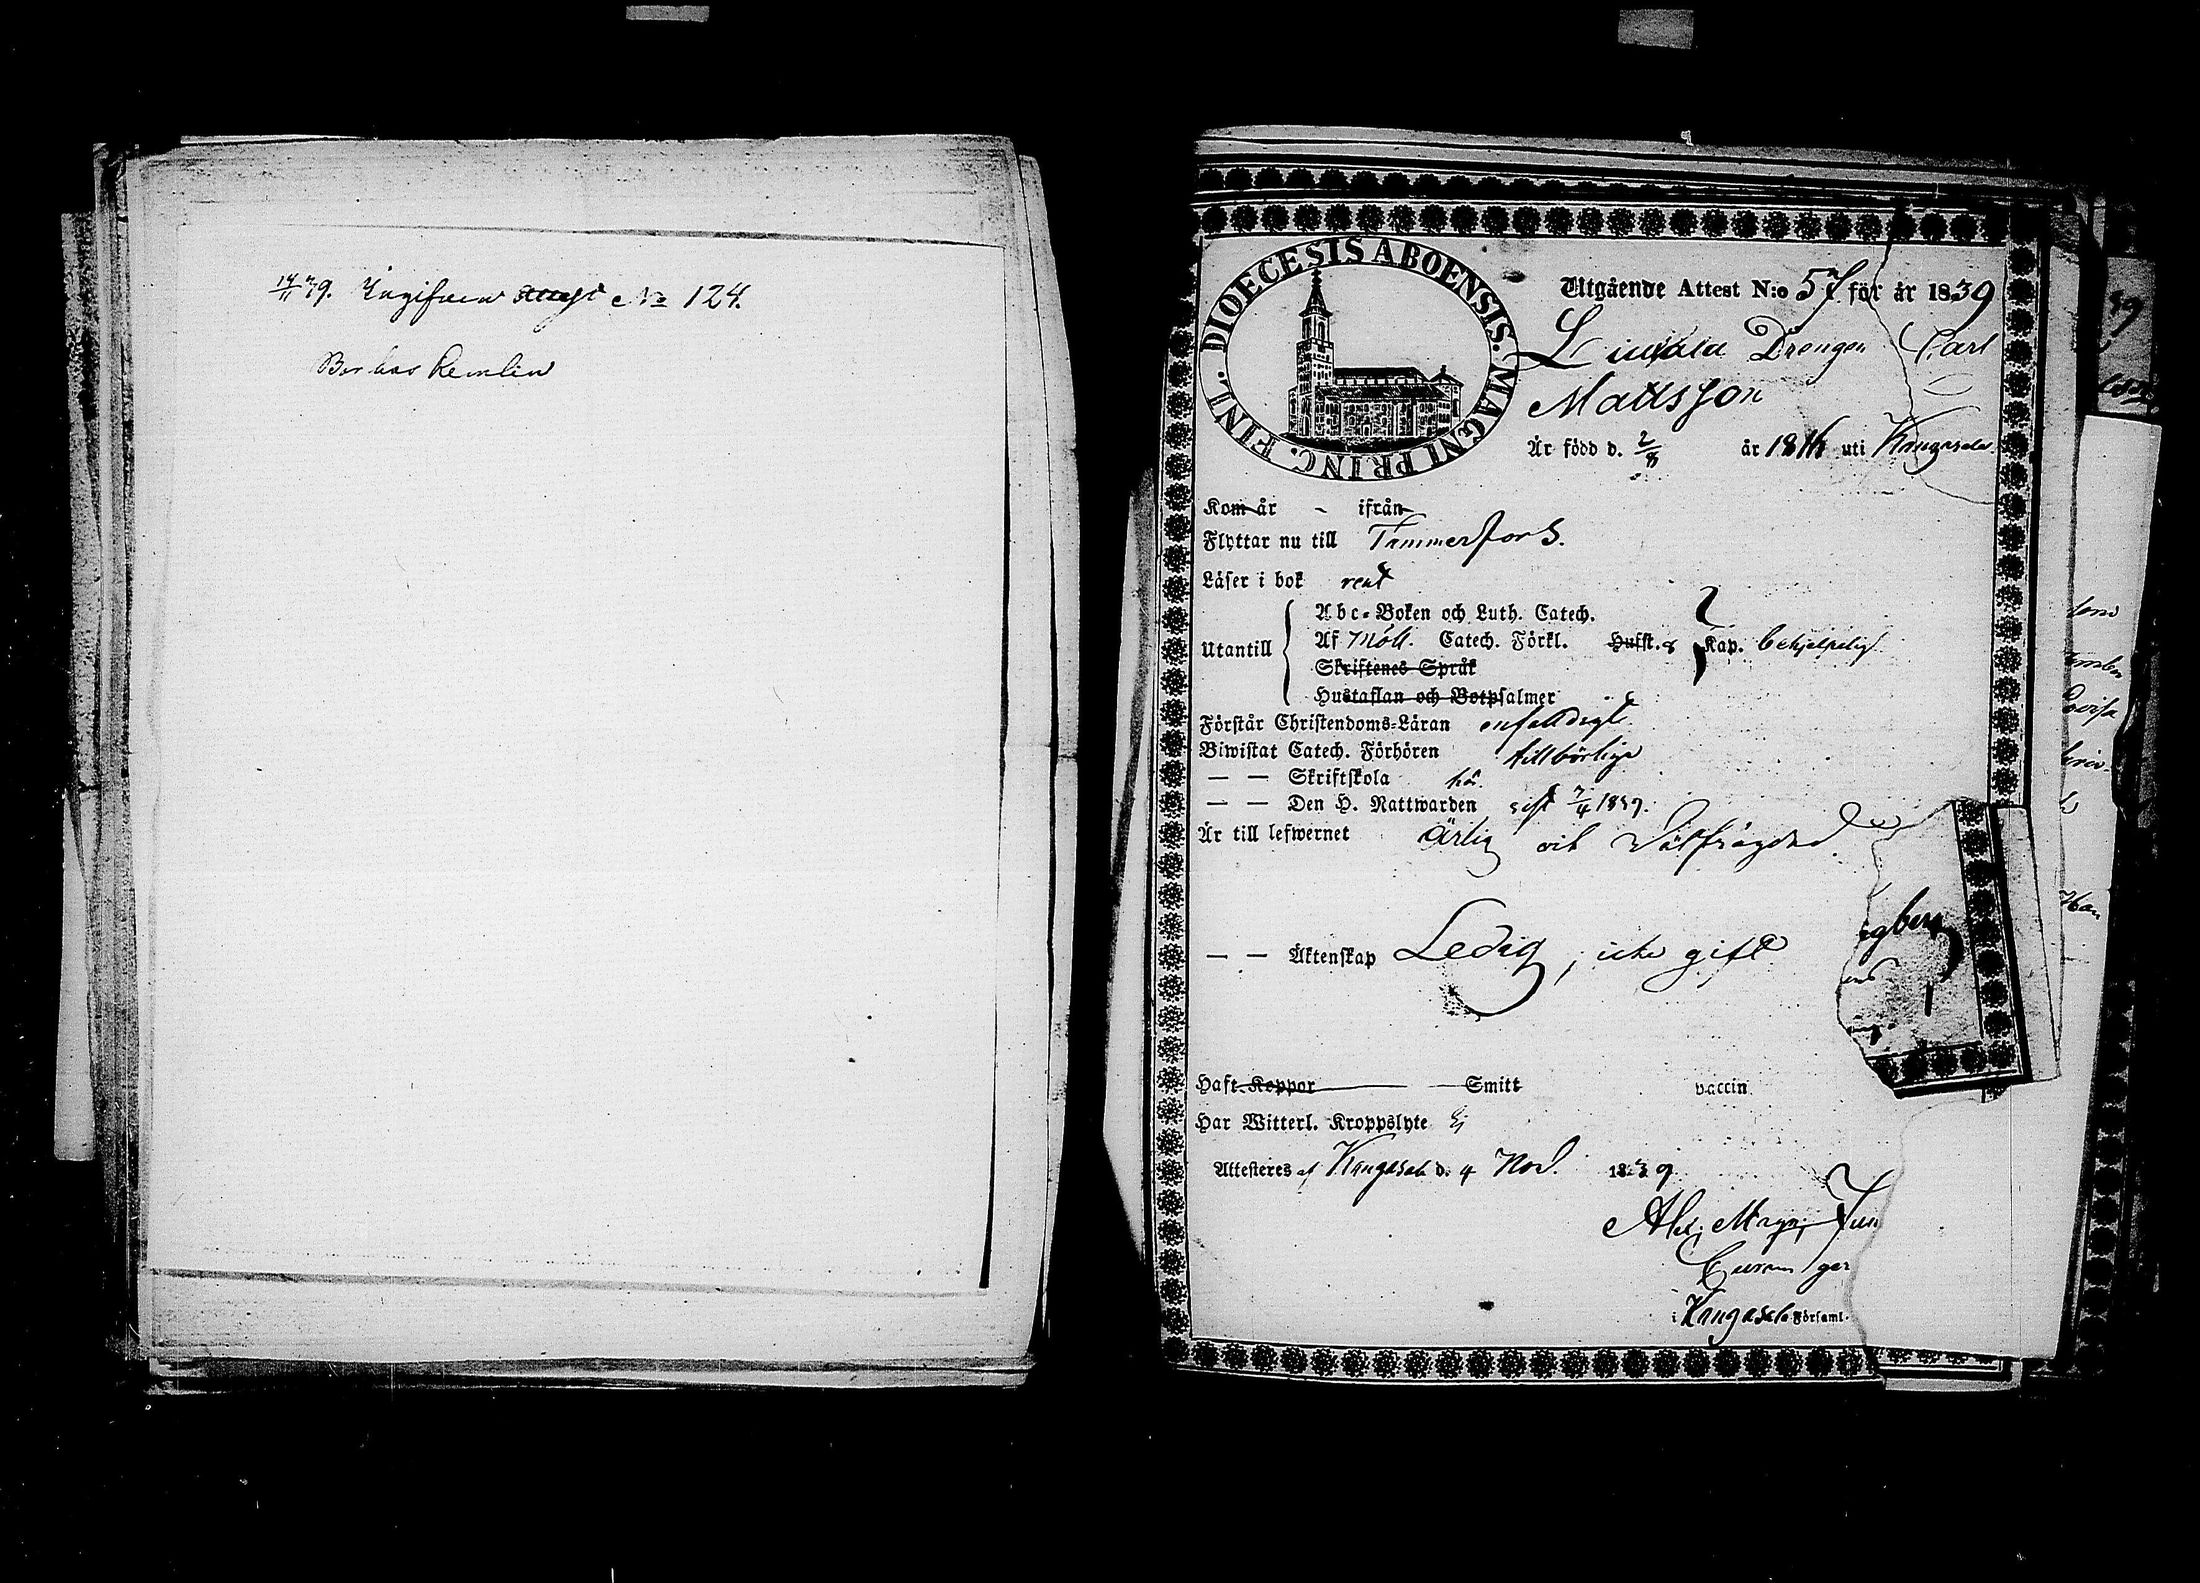 17/11 39. Ingifven No 124.
Bor hos
DIOECESIS ABOENSIS. MAGNI PRINC. FINL.
Utgående Attest N:o 57 för år 1839
Drengen Carl
Mattsson
Är född d. 2/8 år 18 uti Kangasala
Kom år - ifrån
Flyttar nu till Tammerfors.
Läser i bok rent
Abc-Boken och Luth. Catech.
Utantill Af Möll. Catech. Förkl. Husst. Kap. behjelpelig
Skriftenes Språk
Hustaflan och Botpsalmer
Förstår Christendoms-Läran enfaldigt
Biwistat Catech. Förhören tillbörlige
— — Skriftskola
— — Den H. Nattwarden sist 7/4 1839.
Är till lefwernet ärlig och välfrägdad.
gberg
— — Äktenskap Ledig, icke gift
Haft Koppor Smitt vaccin.
Har Witterl. Kroppslyte Ej
Attesteres af Kangasala d. 4 Nov. 1839
Magn.
i Kangasala Församl.